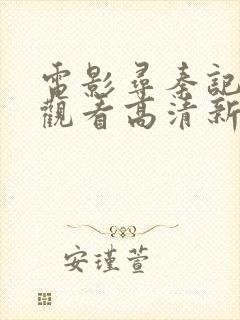 電影尋秦記
觀看高清新
安瑾萱